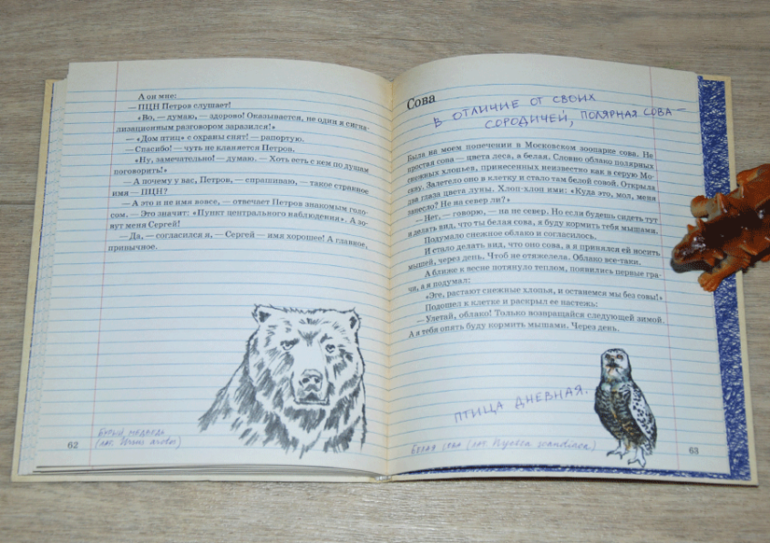 А он мне:
— ПЦН Петров слушает!
«Во, — думаю, — здорово! Оказывается, не один я сигна-
лизационным разговором заразился!»
— «Дом птиц» с охраны снят! — рапортую.
— Спасибо! — чуть не кланяется Петров.
«Ну, замечательно! — думаю. — Хоть есть с кем по душам
поговорить!»
— А почему у вас, Петров, — спрашиваю, — такое странное
имя — ПЦН?
— А это и не имя вовсе, — отвечает Петров знакомым голо-
сом. — Это значит: «Пункт центрального наблюдения». А зо-
вут меня Сергей!
— Да, — согласился я, — Сергей — имя хорошее! А главное,
привычное.
62
Бурый медведь
(лат. Ursus arctos)
Сова
В ОТЛИЧИЕ ОТ СВОИХ
СОРОДИЧЕЙ, ПОЛЯРНАЯ СОВА —
Была на моем попечении в Московском зоопарке сова. Не
простая сова — цвета леса, а белая. Словно облако полярных
снежных хлопьев, принесенных неизвестно как в серую Мо-
скву. Залетело оно в клетку и стало там белой совой. Открыла
два глаза цвета луны. Хлоп-хлоп ими: «Куда это, мол, меня
занесло? Не на север ли?»
— Нет, — говорю, — на не север. Но если будешь сидеть тут
и делать вид, что ты белая сова, я буду кормить тебя мышами.
Подумало снежное облако и согласилось.
И стало делать вид, что оно сова, а я принялся ей носить
мышей, через день. Чтоб не отяжелела. Облако все-таки.
А ближе к весне потянуло теплом, появились первые гра-
чи, а я и подумал:
«Эге, растают снежные хлопья, и останемся мы без совы!»
Подошел к клетке и раскрыл ее настежь:
— Улетай, облако! Только возвращайся следующей зимой.
А я тебя опять буду кормить мышами. Через день.
ПТИЦА ДНЕВНАЯ.
Белая сова (лат. Nyctea scandiaca)
63